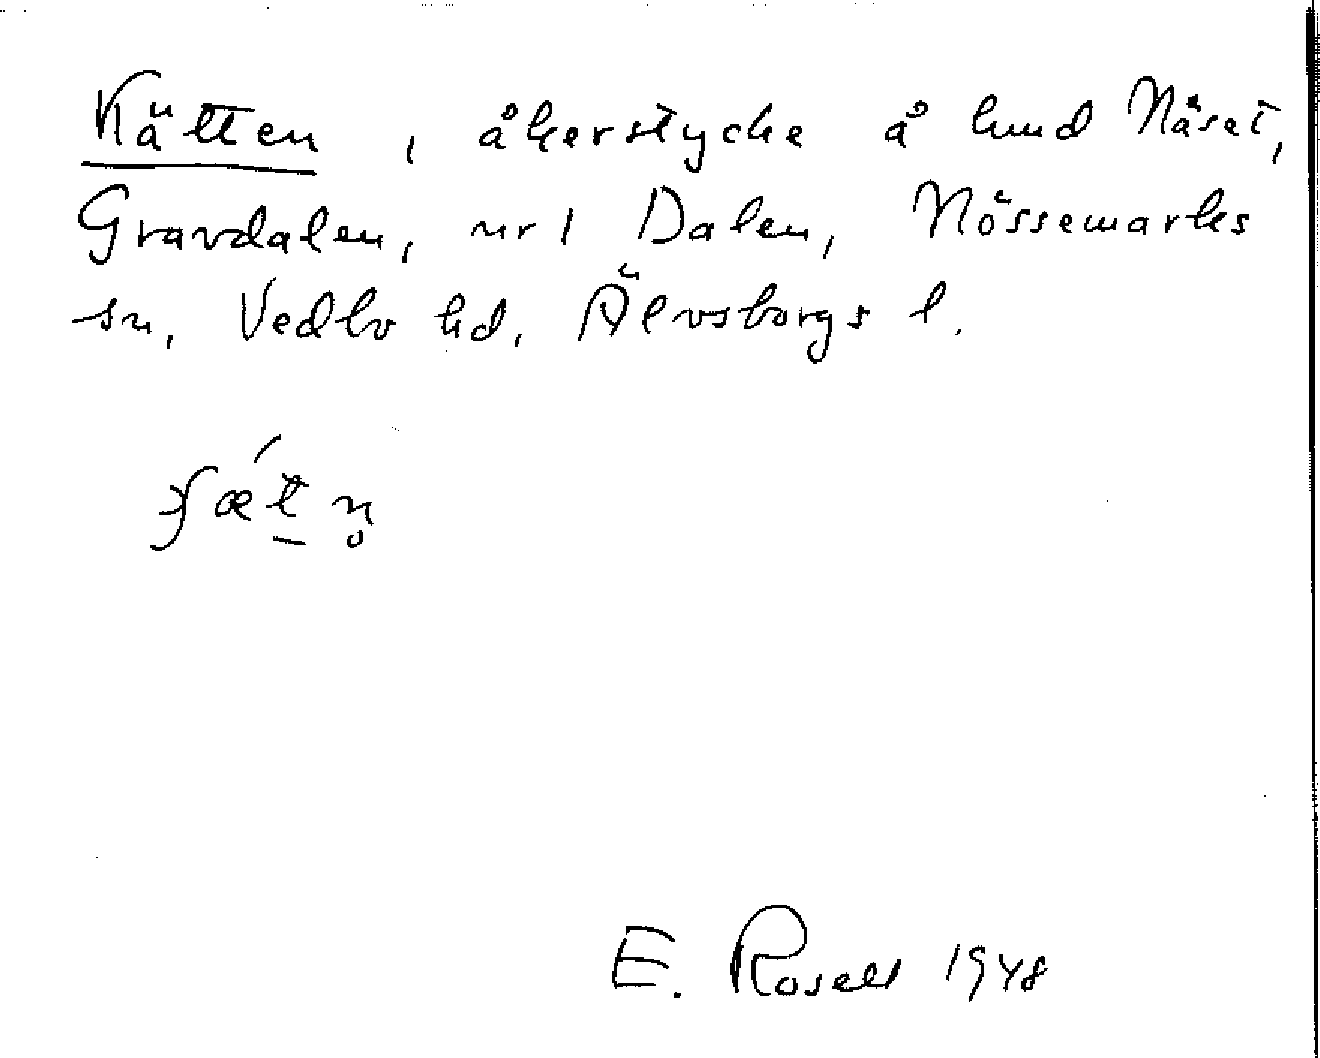 Kätten, åkerstycke å lund Näset,
Gravdalen, nr 1 Dalen, Nössemarks
sn, Vedbo hd, Älvsborgs l.
E. Rosell 1948